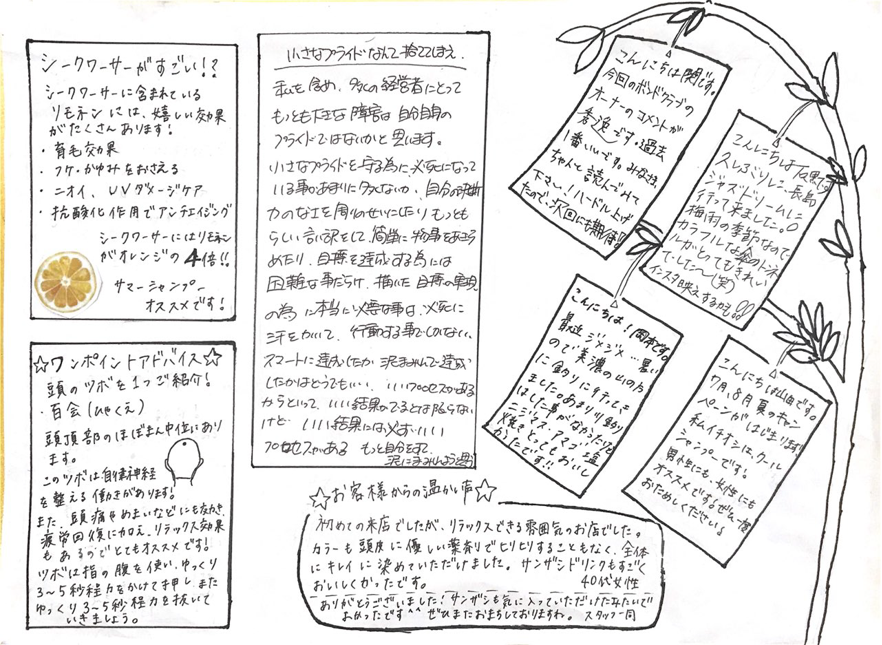 シークワーサーがすごい!?
シークワーサーに含まれている
リモネンには、嬉しい効果
がたくさんあります!
・育毛効果
・フケ・かゆみをおさえる
・ニオイ、UVダメージケア
・抗酸化作用でアンチエイジング
シークワーサーにはリモネン
がオレンジの4倍!!
サマーシャンプー
オススメです!
☆ワンポイントアドバイス☆
頭のツボを1つご紹介!
・百会(ひゃくえ)
頭頂部のほぼまん中位にあり
ます。
このツボは自律神経
を整える働きがあります。
また、頭痛やめまいなどにも効き、
疲労回復に加え、リラックス効果
もあるのでとてもオススメです!
ツボは指の腹を使い、ゆっくり
3~5秒程力をかけて押し、また
ゆっくり3~5秒程力を抜いて
いきましょう。
小さなプライドなんて捨ててしまえ.
私も含め、多くの経営者にとって
もっとも下らない障害は自分自身の
プライドではないかと思います。
小さなプライドを守る為に必死になって
いる事があまりに多くないか、自分の
力のなさを周りのせいにしたり もっとも
らしい言い訳をして、簡単に物事をあきら
めたり、目標を達成する為には
困難な事だらけ、描いた目標の実現
の為に本当に必要な事は、必死に
汗をかいて、行動する事でしかない、
スマートに達成したか 泥まみれで達成
したかはどうでもいい、いいプロセスがある
からといって、いい結果がでるとは限らない
けど いい結果には必ず いい
プロセスがある もっと自分を
泥にまみれよう
こんにちは関です。
今回のボンドクラブの
オーナーのコメントが
秀逸です。過去
1番いいです。みなさま、
ちゃんと読んでみて
下さい!ハードル上げ
たので、次回にも期待!!
こんにちは友野です
久しぶりに、長島
ジャズドリームに
行って来ました。
梅雨の季節なので
カラフルな傘のトンネ
ルがとてもきれい
でした~(笑)
インスタ映えするかも。
こんにちは!岡本です。
最近ジメジメ…暑い
ので美濃の山の方
に釣りに行ってし
ました。あまり釣り
はした事がなかったけど
ニジマス・アマゴ 塩
焼きとってもおいし
かったです!!
こんにちは山田です。
7月、8月 夏のキャン
ペーンがはじまります!
私イチオシは、クール
シャンプーです。
男性にも、女性にも
オススメです!ぜひ一度
おためしください
☆お客様からの温かい声☆
初めての来店でしたが、リラックスできる雰囲気のお店でした。
カラーも頭皮に優しい薬剤でピリピリすることもなく、全体
にキレイに染めていただけました。サンザシドリンクもすごく
おいしくかったです。 40代女性
ありがとうございました!サンザシも気に入っていただけたみたいで
よかったです^^ ぜひまたおまちしておりますね。 スタッフ一同